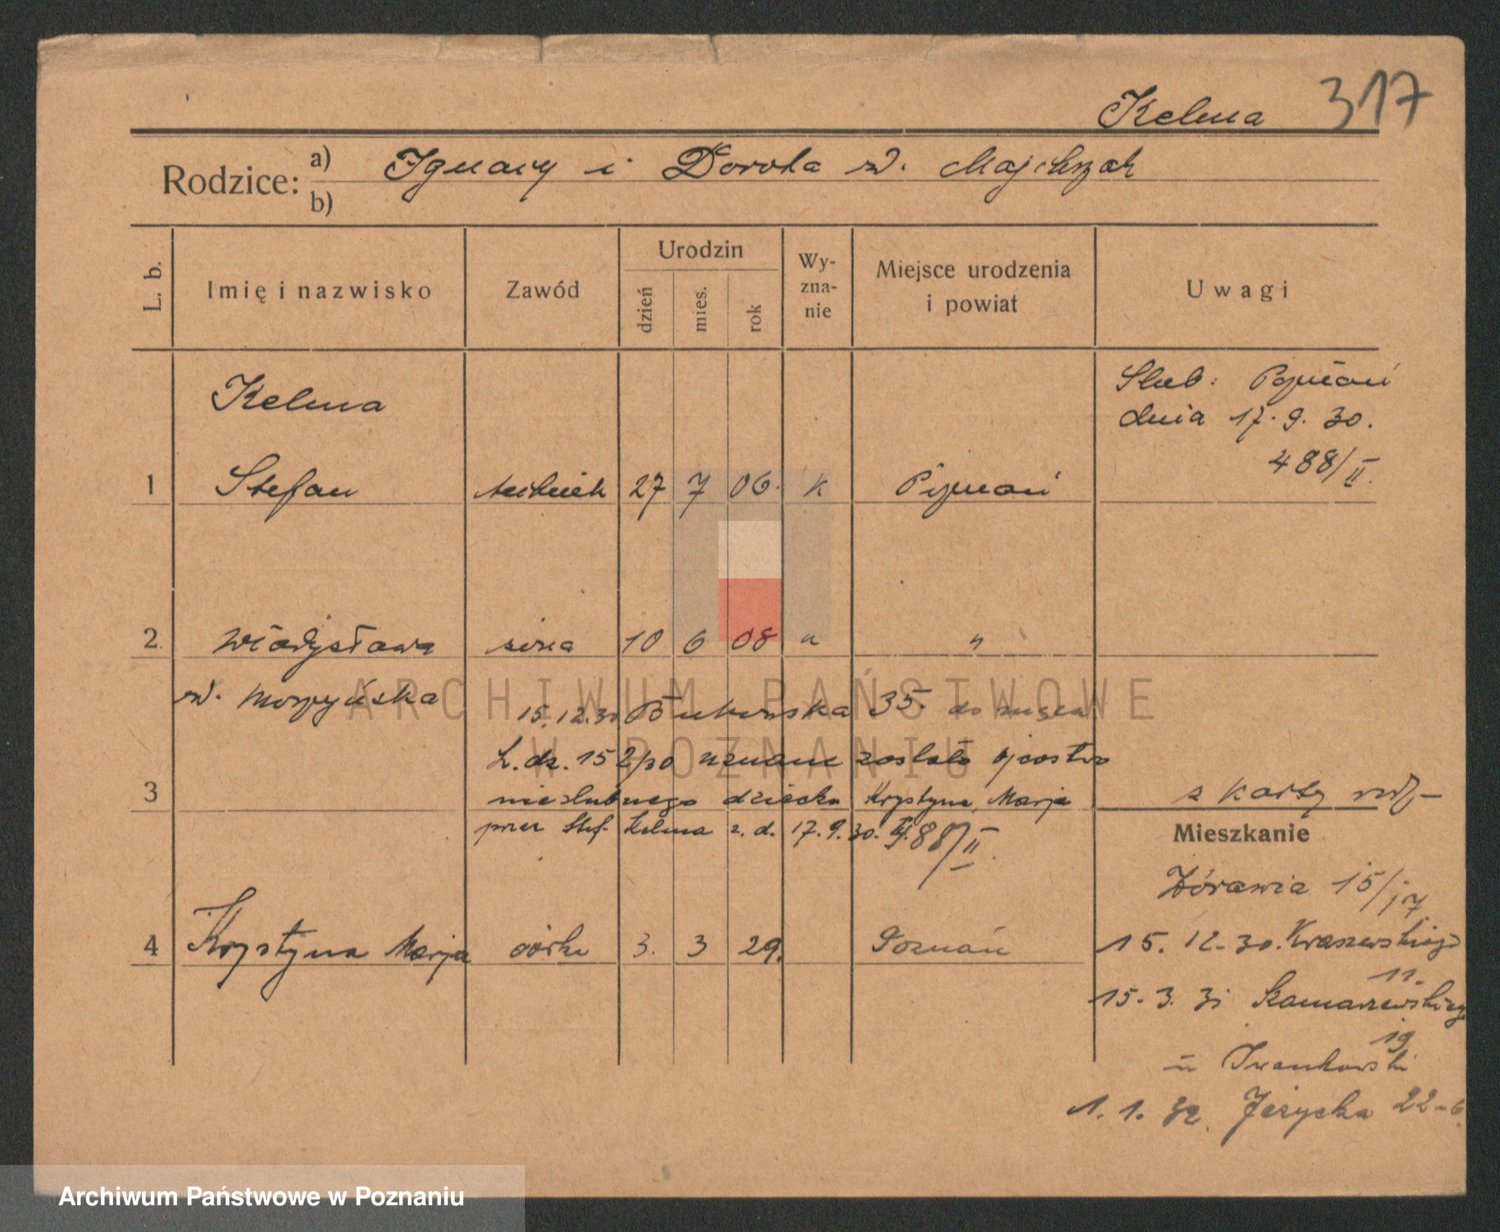 Kelma 317
Rodzice: a) Ignacy i Dorota zd. Majchrzak
b)
L. b. Imię i nazwisko Zawód Urodzin dzień mies. rok Wy-zna-nie Miejsce urodzenia i powiat Uwagi
Kelma
Ślub: Poznań
dnia 17. 9. 30.
488/II.
1 Stefan technik 27 7 06. k Poznań
2 Władysława żona 10 6 08 " "
zd.
15.12.30 Bukowska 35.
L. dz. 152/30 uznane zostało ojcostwo
nieślubnego dziecka Krystyna, Marja
3
przez Stef. Kelma z. d. 17. 9. 30. 488/II.
z karty
Mieszkanie
Żórawia 15/17
4 Krystyna Marja córka 3. 3 29. Poznań
15. 12. 30. Kraszewskiego
11.
15. 3. 31
19
u Iwankowski
1. 1. 32. Jeżycka 22-6
ARCHIWUM PAŃSTWOWE
W POZNANIU
Archiwum Państwowe w Poznaniu